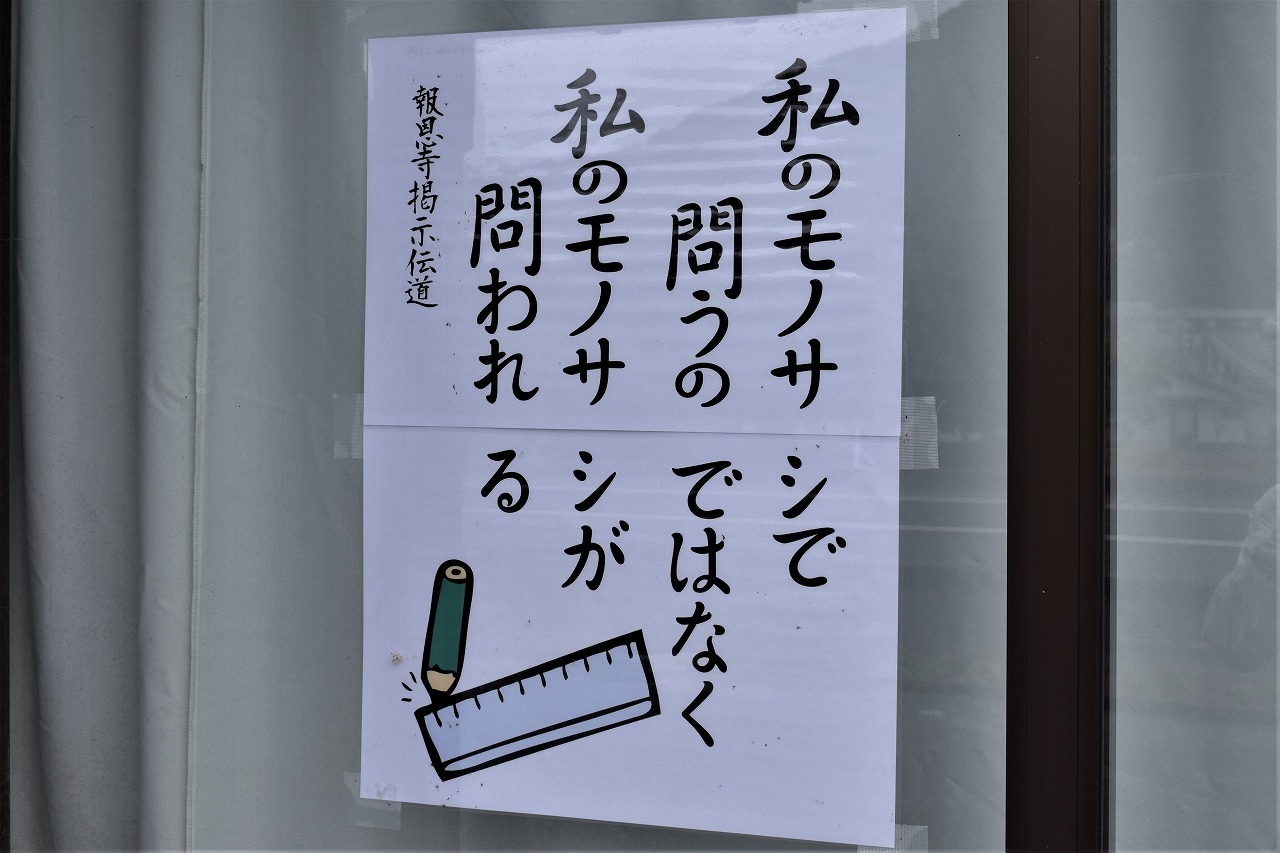 私のモノサシで
問うのではなく
私のモノサシが
問われる
報恩寺掲示伝道